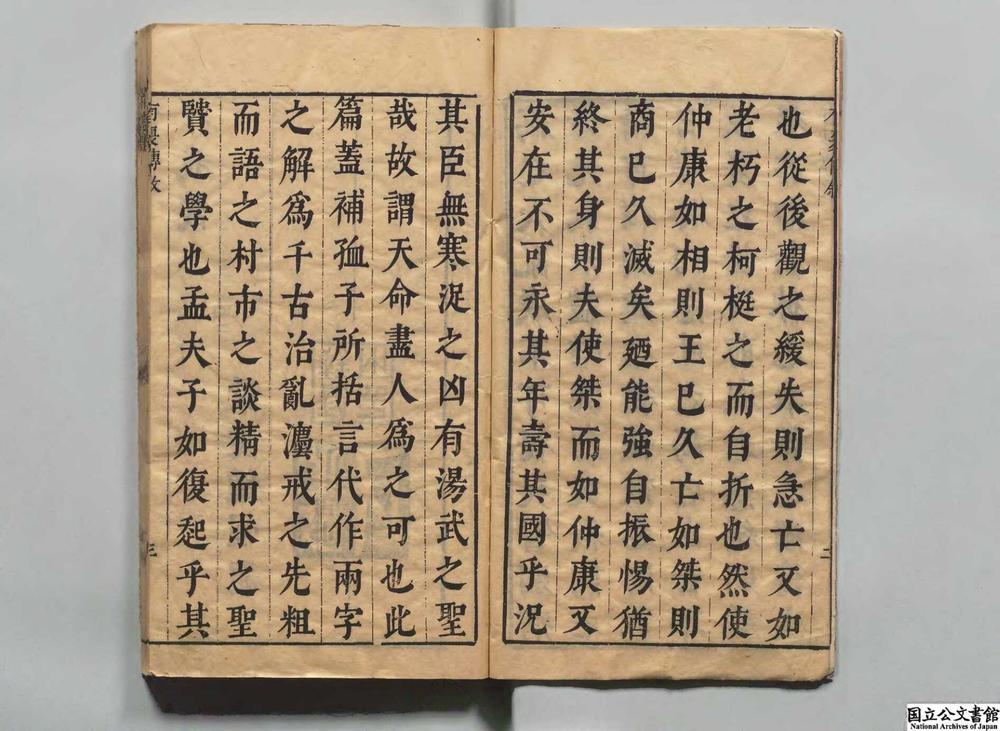 也從後觀之緩失則急亡又如
老朽之柯梃之而自折也然使
仲康如相則王已久亡如桀則
商已久滅矣廼能強自振惕猶
終其身則夫使桀而如仲康又
安在不可永其年壽其國乎況
其臣無寒浞之凶有湯武之聖
哉故謂天命盡人爲之可也此
篇蓋補孤子所括言代作兩字
之解爲千古治亂灋戒之先粗
而語之村市之談精而求之聖
贒之學也孟夫子如復起乎其
三
国立公文書館
National Archives of Japan